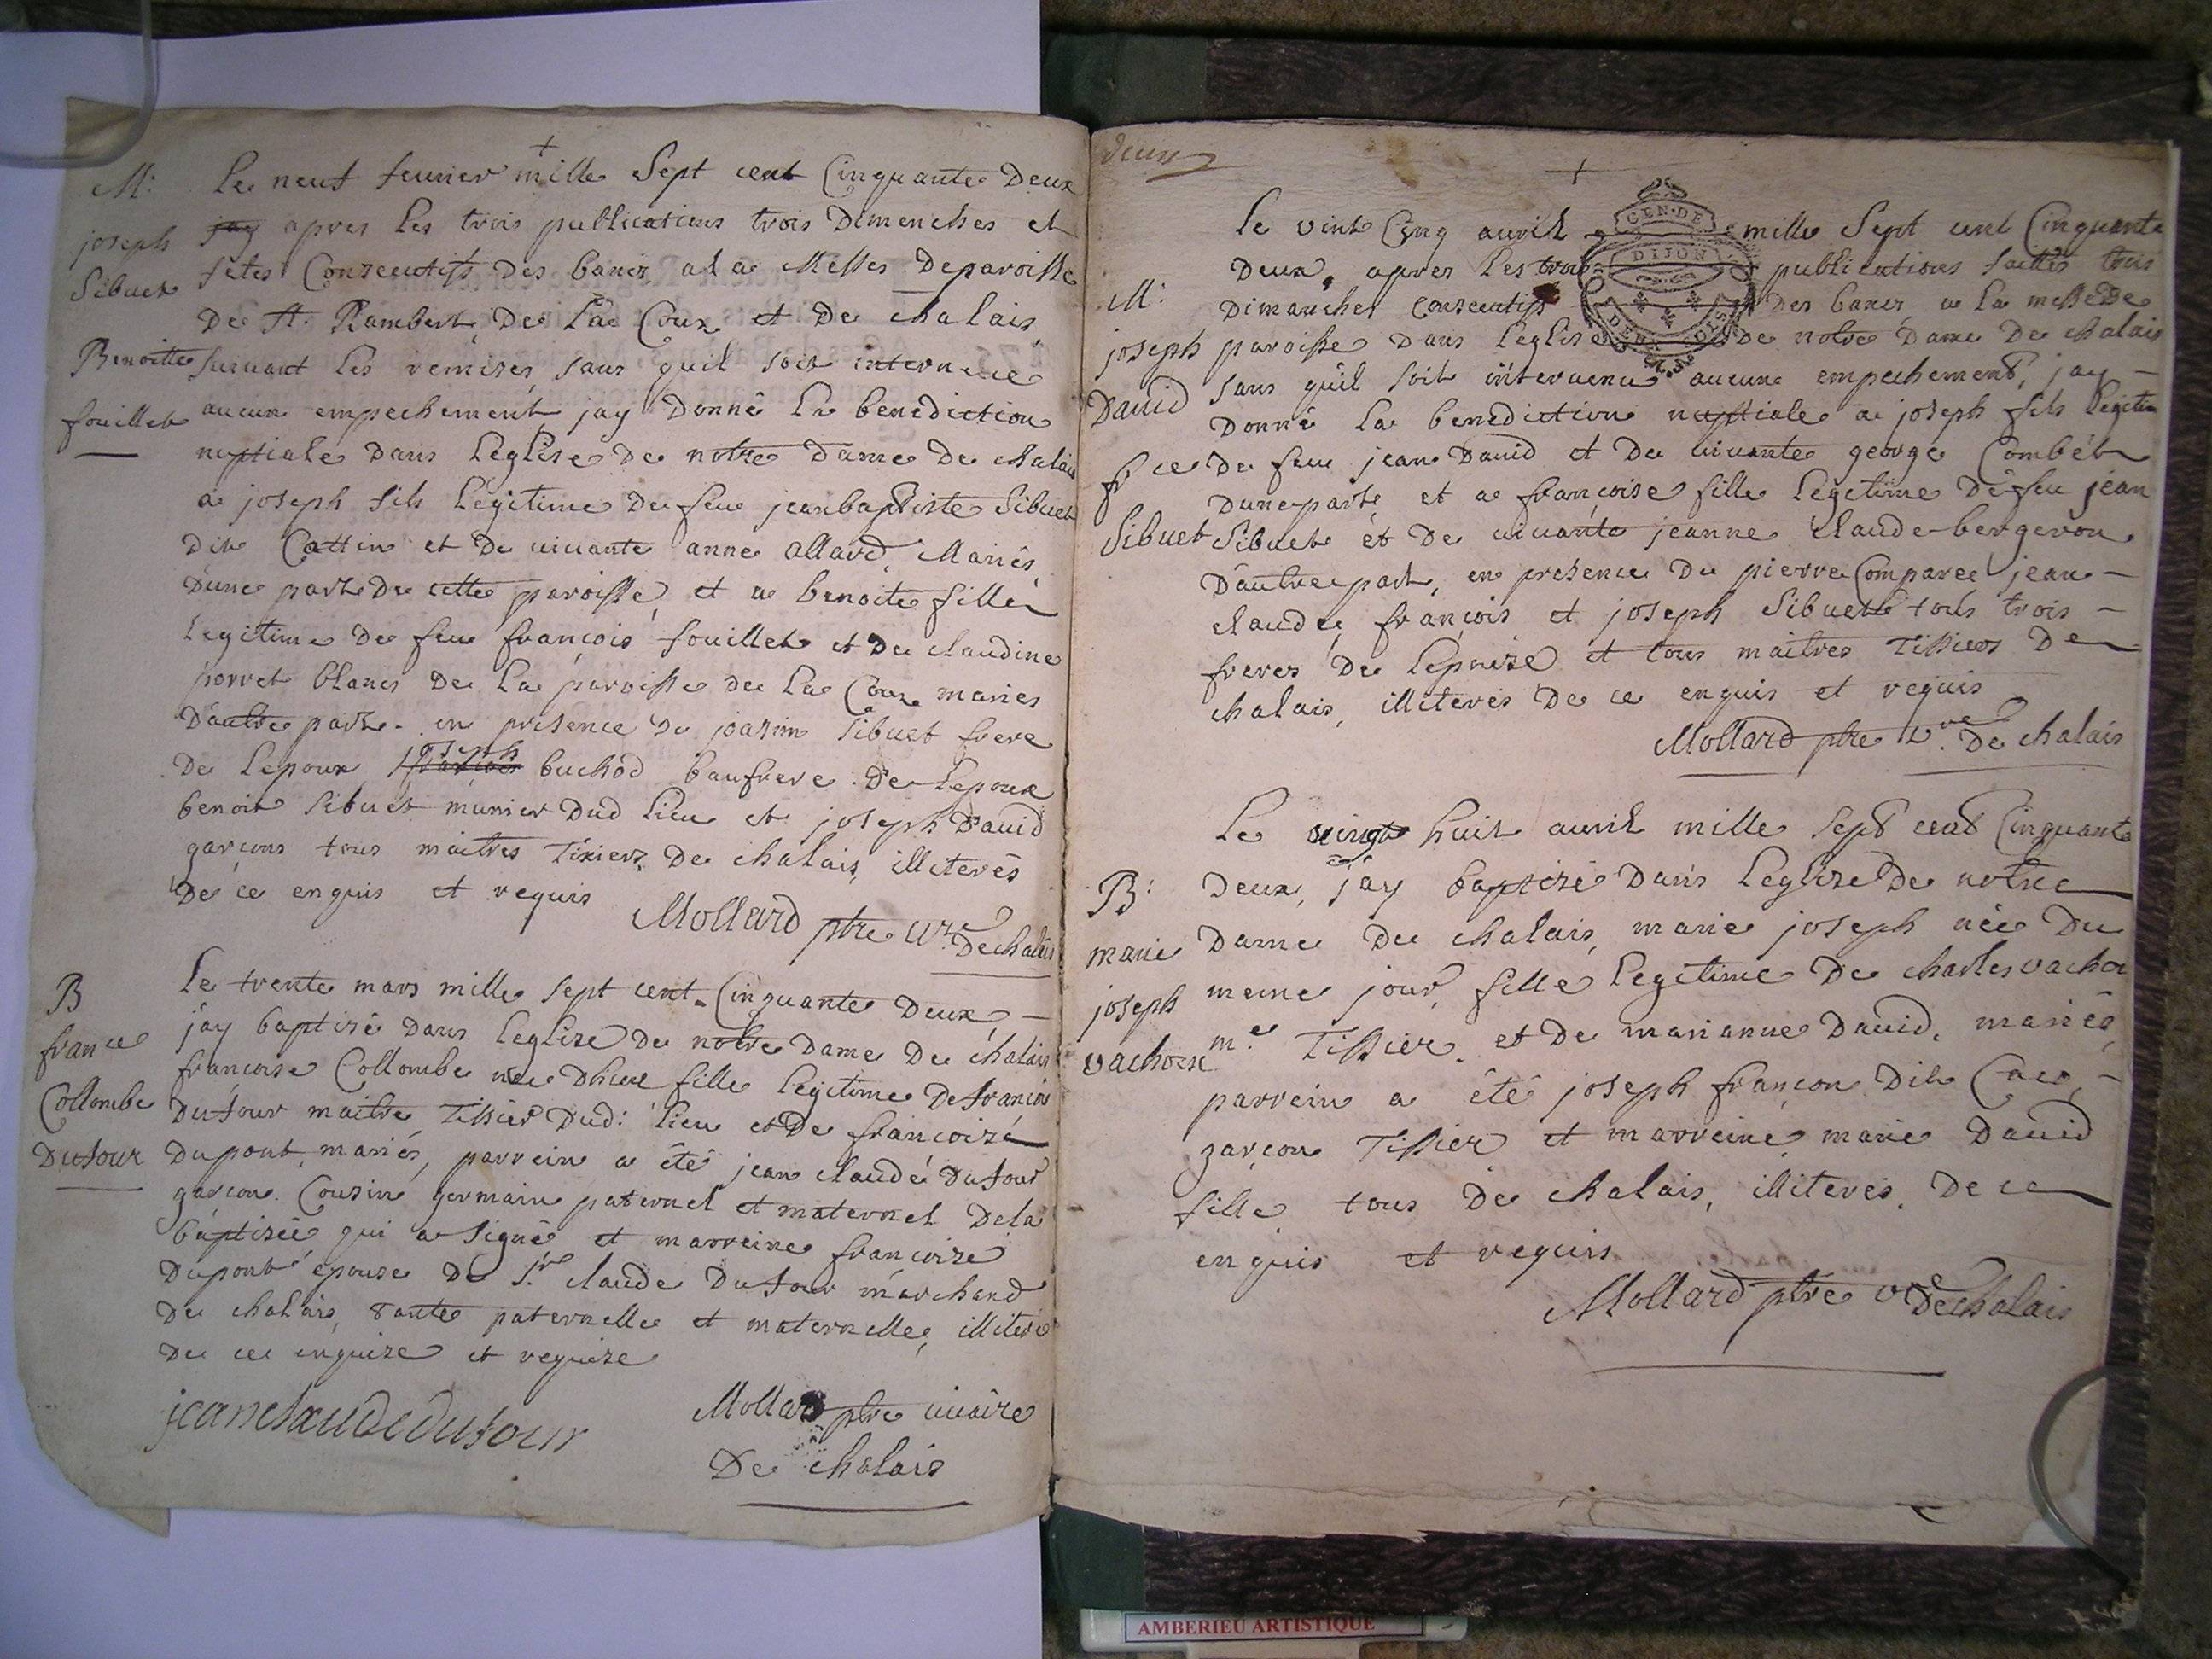 M:
joseph
Sibuet
Benoitte
fouillet
+
Le neuf feurier mille Sept cent Cinquante Deux
jay apres les trois publications trois Dimenches et
fetes Consecutifs Des bancs a la Messes De paroisse
De st. Rambert De La Coux et De chalais
suiuant les remises sans quil soit interuenue
aucun empechement jay Donné la benediction
nuptiale Dans Leglise De notre Dame De chalais
a joseph fils Legitime De feue jean baptiste Sibuet
Dit Cattin et De uiuante anne allard, Mariés,
Dune part De cette paroisse, et a benoite fille
Legitime De feue françois fouillet et De claudine
porret blanc De La paroisse De La Coux mariés
Dautre part. en presence De joasim sibuet frere
De Lepoux joseph buchod baufrere De Lepoux
benoit sibuet munier Dud lieu et joseph Dauid
garçons tous maitres Tixiers De chalais, illiterés
De ce enquis et requis
Mollard ptre ure
De chalais
B
france
Collombe
Dufour
Le trente mars mille sept cent Cinquante Deux,
jay baptisé Dans Leglise De notre Dame De chalais
francoise Collombe née Dhier fille Legitime De francois
Dufour maitre Tissier Dud: lieu et De françoize
Dupont, mariés, parrein a été jean claude Dufour
garcon Cousin germain paternel et maternel De la
baptisée qui a signé et marreine francoize
Dupont épouse De Sr. claude Dufour marchand
De chalais, tante paternelle et maternelle, illiteré
De ce enquize et requize
jeanclaudedufour
Mollard ptre uicaire
De chalais
deux
+
GEN. DE
DIJON
DEUX
M:
joseph
Dauid
fce
Sibuet
Le vint Cinq auril mille Sept cent Cinquante
Deux, apres les trois publications faittes trois
Dimanches consecutifs Des bancs a la messe De
paroisse Dans Leglise De notre Dame De chalais
sans quil soit interuenu aucune empechement, jay
Donné la benediction nuptiale a joseph fils Legitim
De feue jean Dauid et De uiuante george Combét
Dune part, et a françoise fille Legetime De feu jean
Sibuet et De uiuante jeanne Claude bergeron
Dautre part, en presence De pierre Comparee jean
claude, françois et joseph Sibuet tous trois
freres De Lepouze et tous maitres Tissiers De
chalais, illiterés De ce enquis et requis
Mollard ptre vre De chalais
B:
marie
joseph
vachoux
Le vingt huit auril mille sept cent Cinquante
Deux, jay baptizé Dans Leglize De notre
Dame De chalais, marie joseph née Du
meme jour, fille Legetime De charles vachou
me Tissier. et De marianne Dauid, mariés,
parrein a été joseph françon Dit Caco,
garçon Tissier et marreine marie Dauid
fille tous De chalais, illiterés, De ce
enquis et requis
Mollard ptre vre De chalais
AMBERIEU ARTISTIQUE